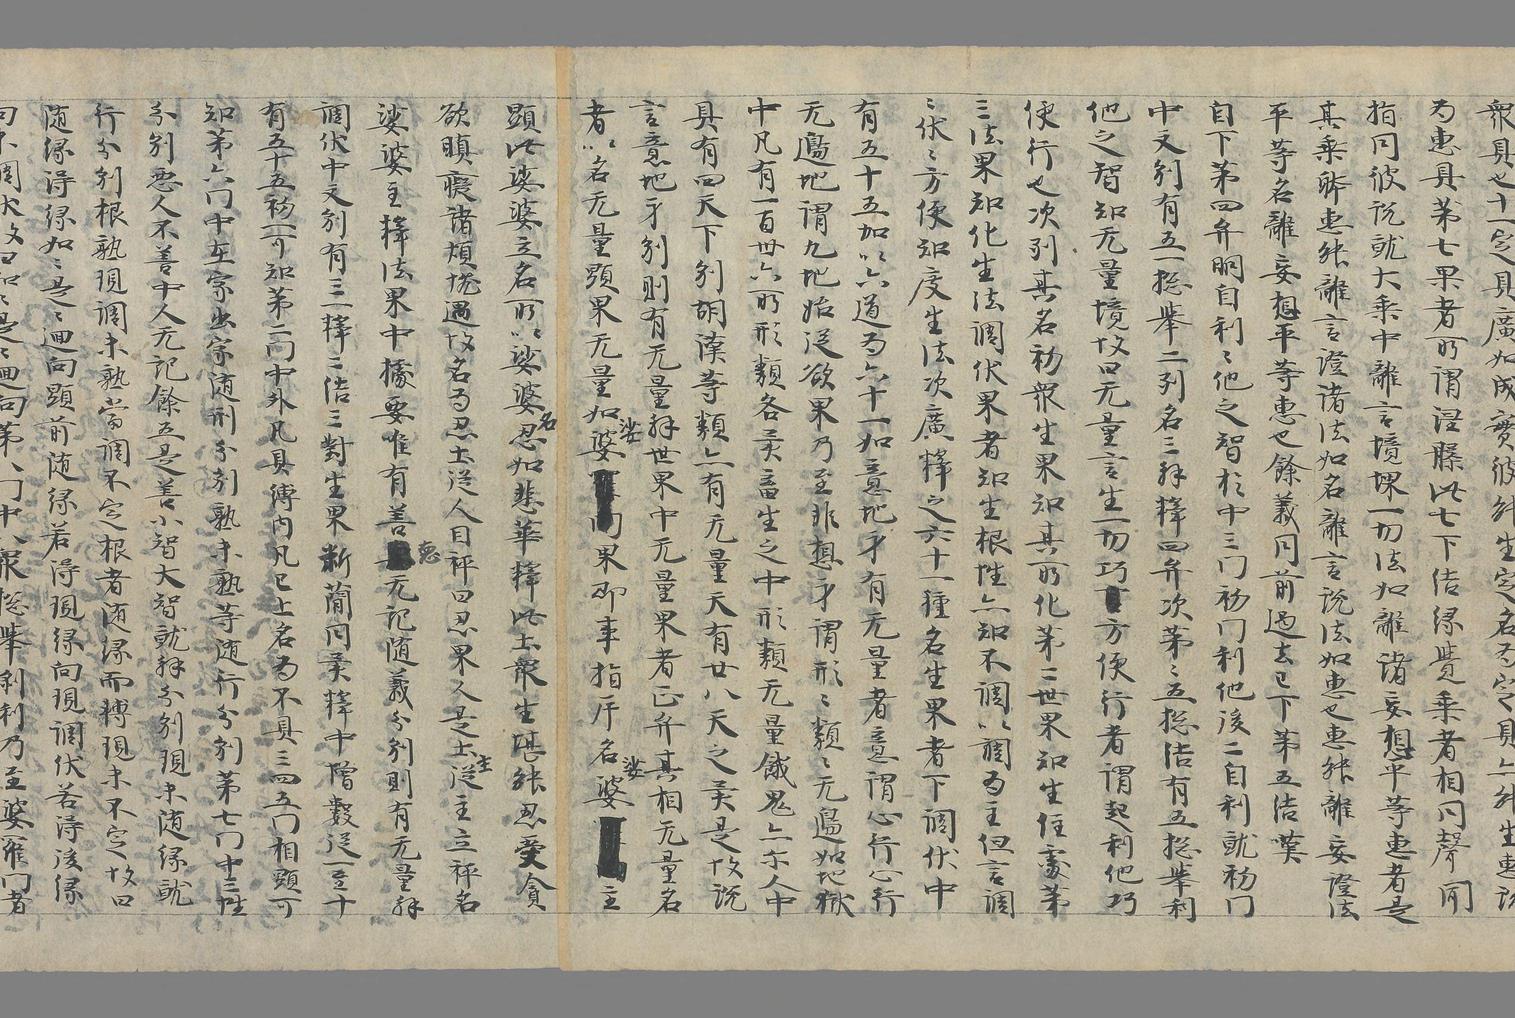 衆具也十一定具廣如成實彼能生定名为定具亠能生惠說
为惠具苐七果者所謂涅槃此七下結緣覺乘者相同聲聞
指同彼說就大乘中離言境堺一切法如離諸妄想平等惠者是
其乘躰惠能離言證諸法如名離言說法如惠也惠能離妄證法
平等名離妄想平等惠也餘義同前過去已下苐五結嘆
自下苐四弁明自利々他之智於中三門初門利他後二自利就初門
中文别有五一捴舉二列名三䚹釋四弁次苐々五捴結有五捴舉利
他之智知无量境故曰无量言生一切巧方便行者謂起利他巧
便行也次列其名初衆生果知其所化苐二世果知生住處苐
三法果知化生法調伏果者知生根性亠知不調以調为主但言調
々伏々方便知度生法次廣釋之六十一種名生果者下調伏中
有五十五加以六道为六十一如意地才有无量者意謂心行心行
无邊地謂九地始從欲果乃至非想才謂形々類々无邊如地獄
中凡有一百卅六所形類各異畜生之中形類无量餓鬼亠尔人中
具有四天下别胡漢等類亠有无量天有廿八天之異是故說
言意地才别則有无量䚹世果中无量果者正弁其相无量名
者以名无量顕果无量如娑婆同果即事指斥名娑婆主
顕此娑婆立名所以娑婆名忍如悲華釋此土衆生堪能忍受貪
欲瞋癡諸煩惱過故名为忍土從人目秤曰忍果人是土主從主立秤名
娑婆主釋法果中㨿要唯有善惡无記隨義分别則有无量䚹
調伏中文别有三一釋二結三對生果斷簡同異釋中增數從一至十
有五十五初一可知苐二門中外凡具縛內凡已上名为不具三四五門相顕可
知苐六門中在家出家隨刑分别熟未熟等隨行分别苐七門中三性
分别惡人不善中人无記餘五是善小智大智就䚹分别現未隨緣就
行分别根熟現調未熟當調不定根者隨緣而轉現未不定故曰
隨緣淂緣如々是々迴向顕前隨緣若淂現緣向現調伏若淂後緣
向未調伏故曰如々是々迴向苐八門中八衆捴舉刹利乃至婆羅門者